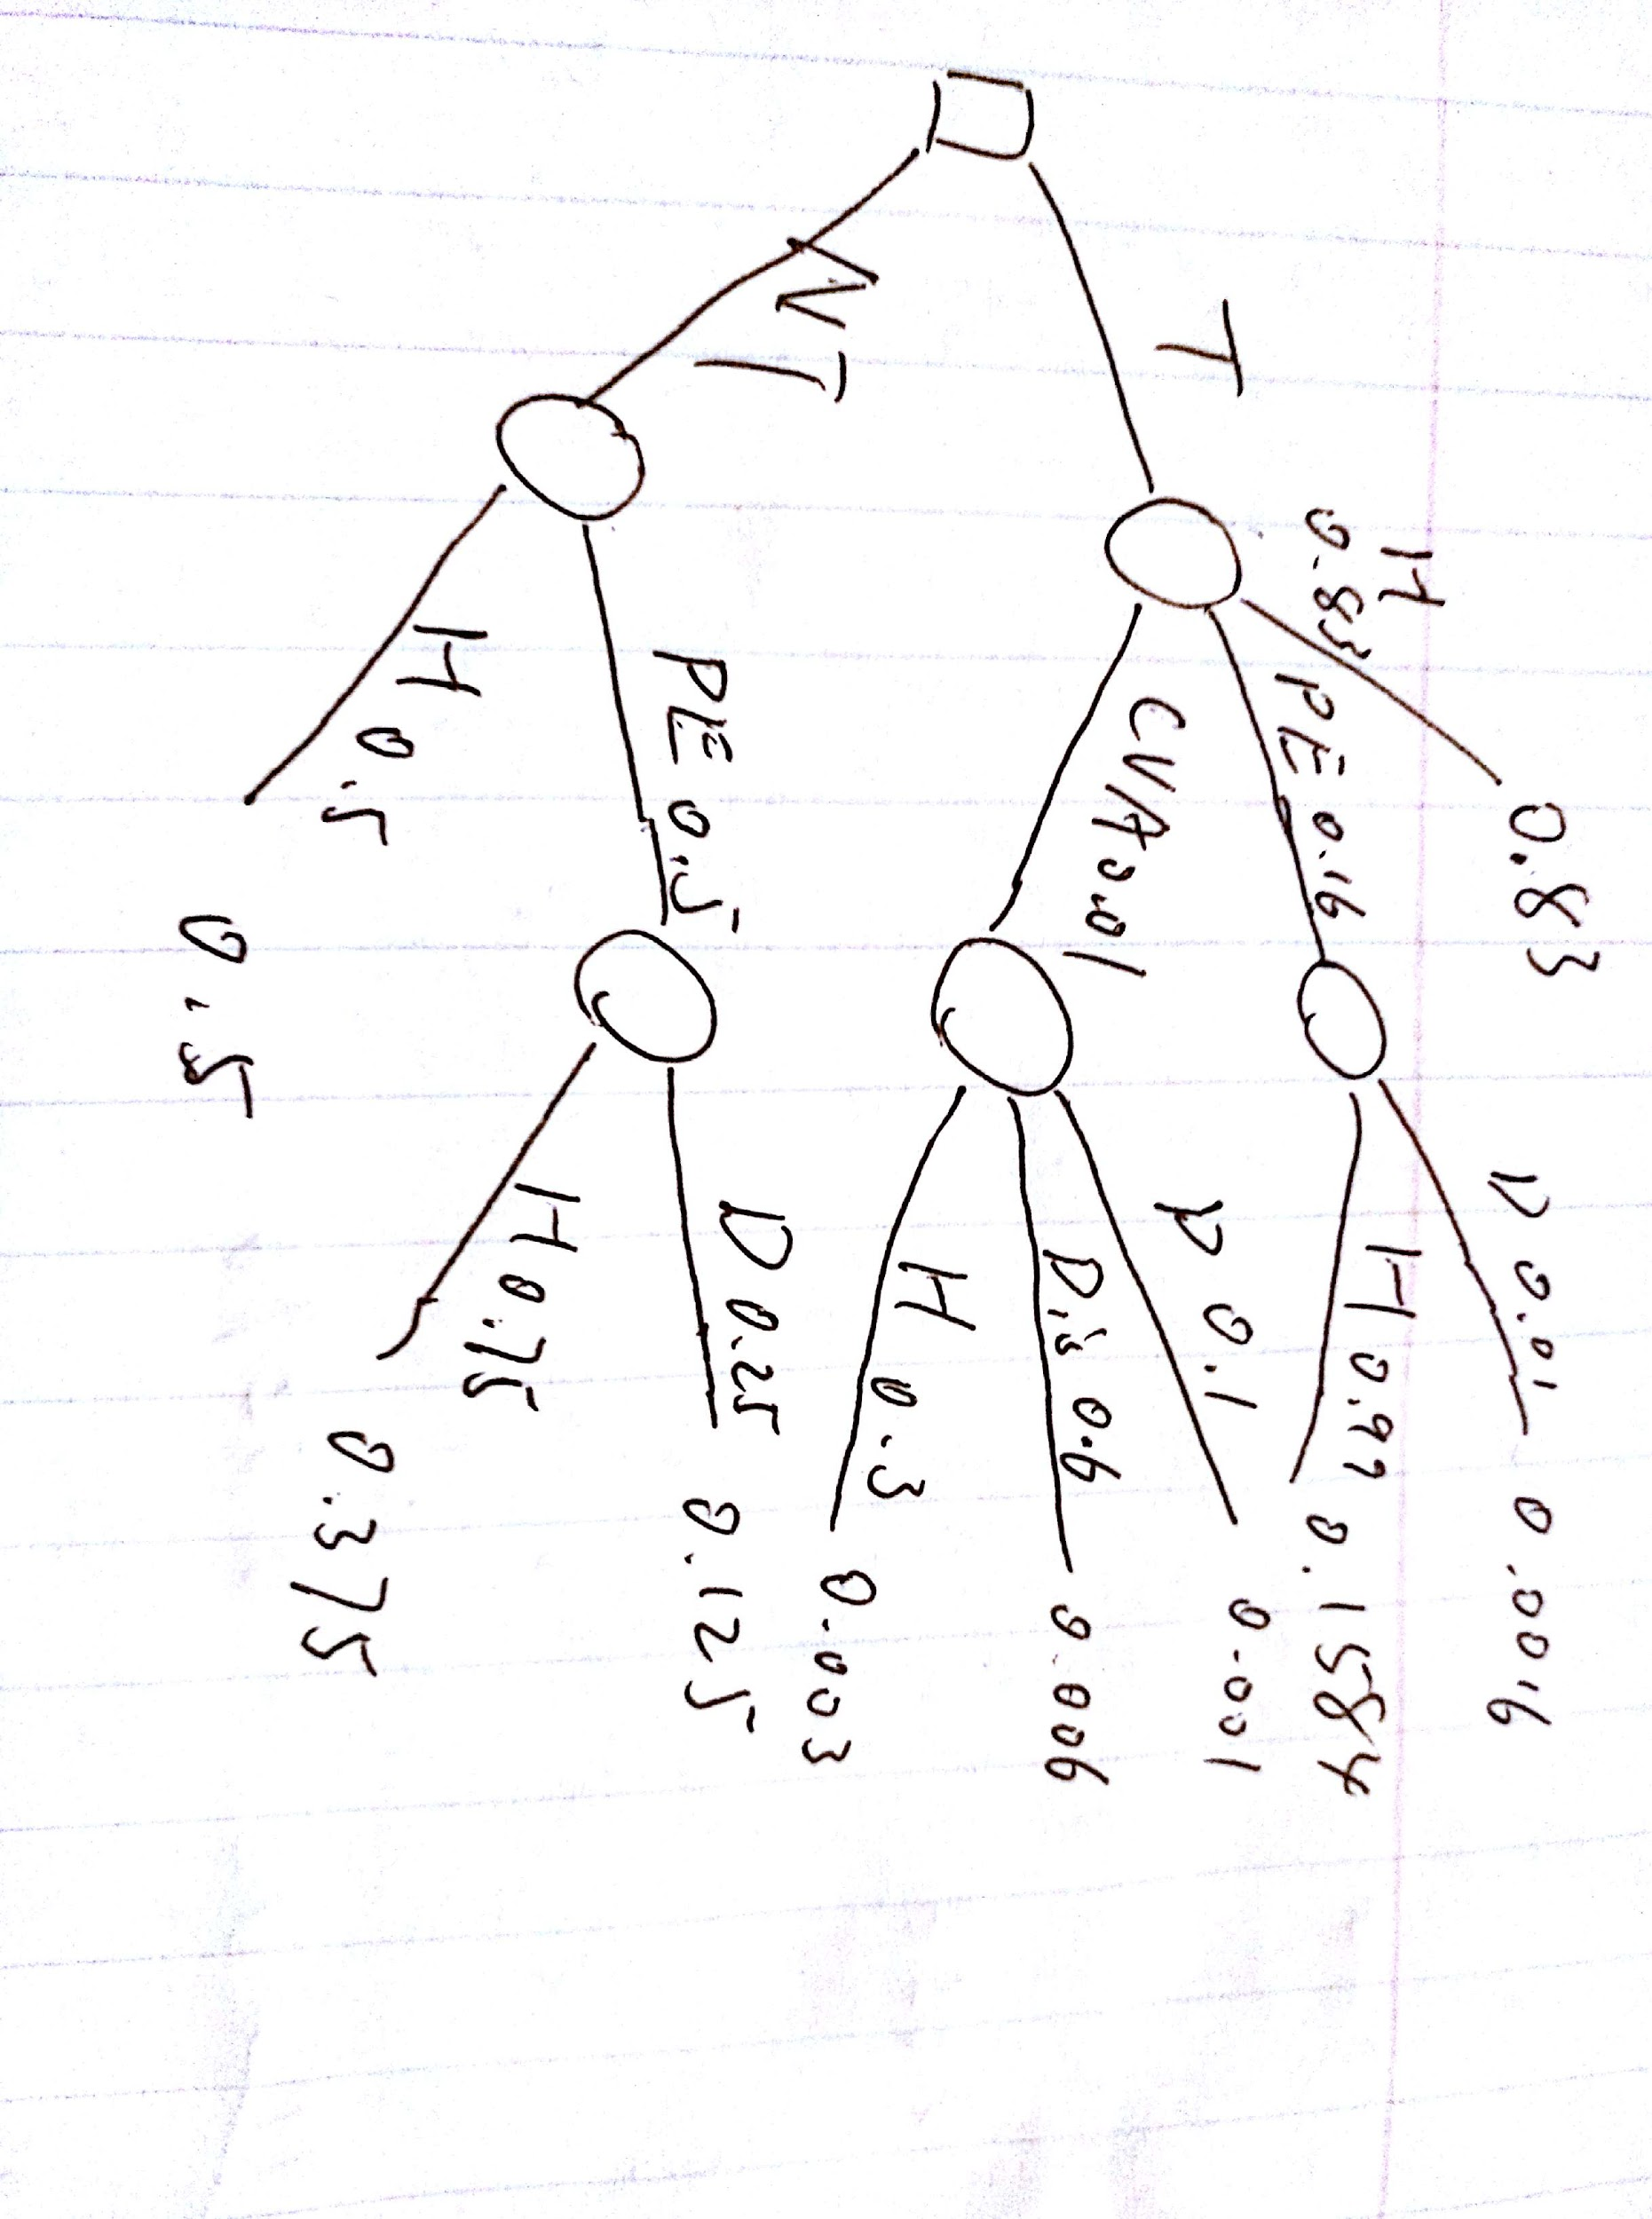 H
0.83
0.83
T
PE 0.16
D 0.01
0.0016
H 0.99
0.1584
CVA 0.01
D 0.1
0.001
Dis 0.6
0.006
H 0.3
0.003
NT
PE 0.5
D 0.25
0.125
H 0.75
0.375
H 0.5
0.5